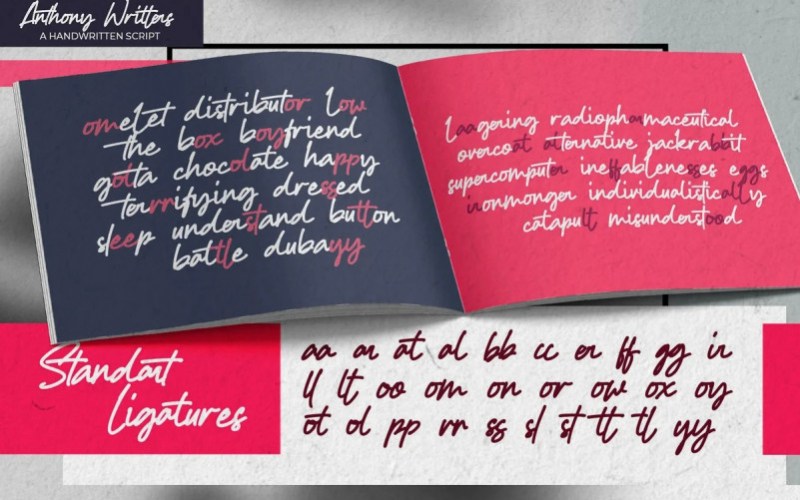 Anthony Writters
A HANDWRITTEN SCRIPT
omelet distributor low
the box boyfriend
gotta chocolate happy
terrifying dressed
sleep understand button
battle dubayy
laagering radiopharmaceutical
overcoat alternative jackrabbit
supercomputer ineffablenesses eggs
ironmonger individualistically
catapult misunderstood
Standart
Ligatures
aa ar at al bb cc er ff gg ir
ll lt oo om on or ow ox oy
ot ol pp rr ss sl st tt tl yy